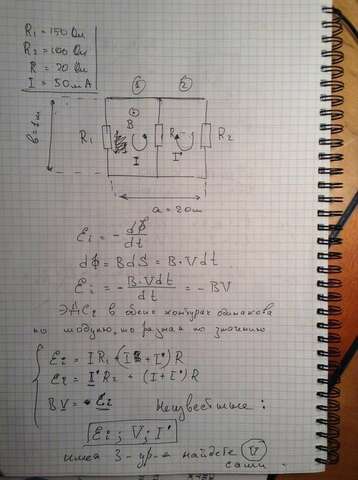 R₁ = 150 Ом
R₂ = 100 Ом
R = 20 Ом
I = 50 мА
① ②
B
R₁ R R₂
I I'
a = 20м
Ei = - dФ/dt
dФ = BdS = B·Vdt
Ei = - B·Vdt/dt = - BV
ЭДСi в обоих контурах одинакова
по модулю, но разная по значению
Ei = IR₁ + (I + I')R
Ei = I'R₂ + (I + I')R
BV = Ei Неизвестные:
Ei ; V ; I'
имея 3 - ур-я найдёте V
сами.